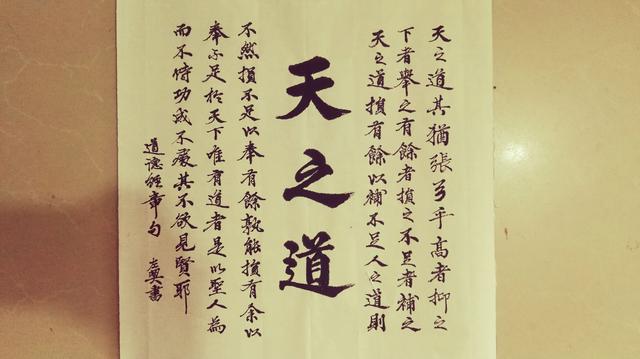 天之道其猶張弓乎高者抑之
下者舉之有餘者損之不足者補之
天之道損有餘以補不足人之道則
天之道
不然損不足以奉有餘孰能損有余以
奉不足於天下唯有道者是以聖人為
而不恃功成不處其不欲見賢耶
道德經章句
書